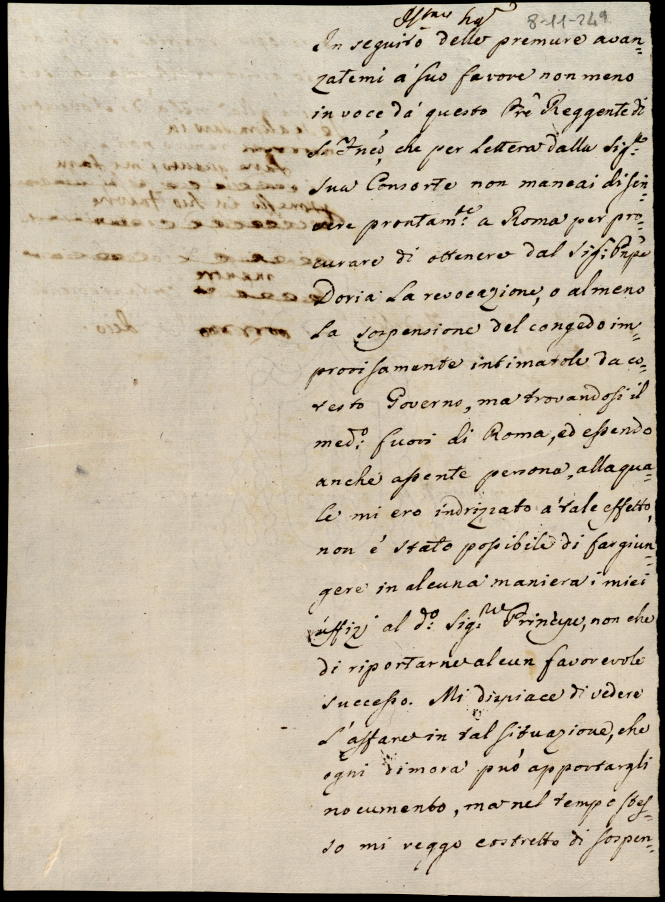 8-11-249
Ill.mo Sig.r
In seguito delle premure avan-
zatemi à suo favore non meno
in voce dà questo Pre Reggente di
che per Lettera dalla Sig.ra
sua Consorte non mancai di scri-
vere prontam.te a Roma per pro-
curare di ottenere dal Sig.r Pnpe
Doria la revocazione, o almeno
la sospensione del congedo im-
provisamente intimatole da co-
testo Governo, ma trovandosi il
med.o fuori di Roma, ed essendo
anche assente persona, alla qua-
le mi ero indrizzato à tale effetto,
non è stato possibile di far giun-
gere in alcuna maniera i miei
uffizj al d.o Sig.re Principe, non che
di riportarne alcun favorevole
successo. Mi dispiace di vedere
l'affare in tal situazione, che
ogni dimora può apportargli
nocumento, ma nel tempo stes-
so mi reggo costretto di sospen-